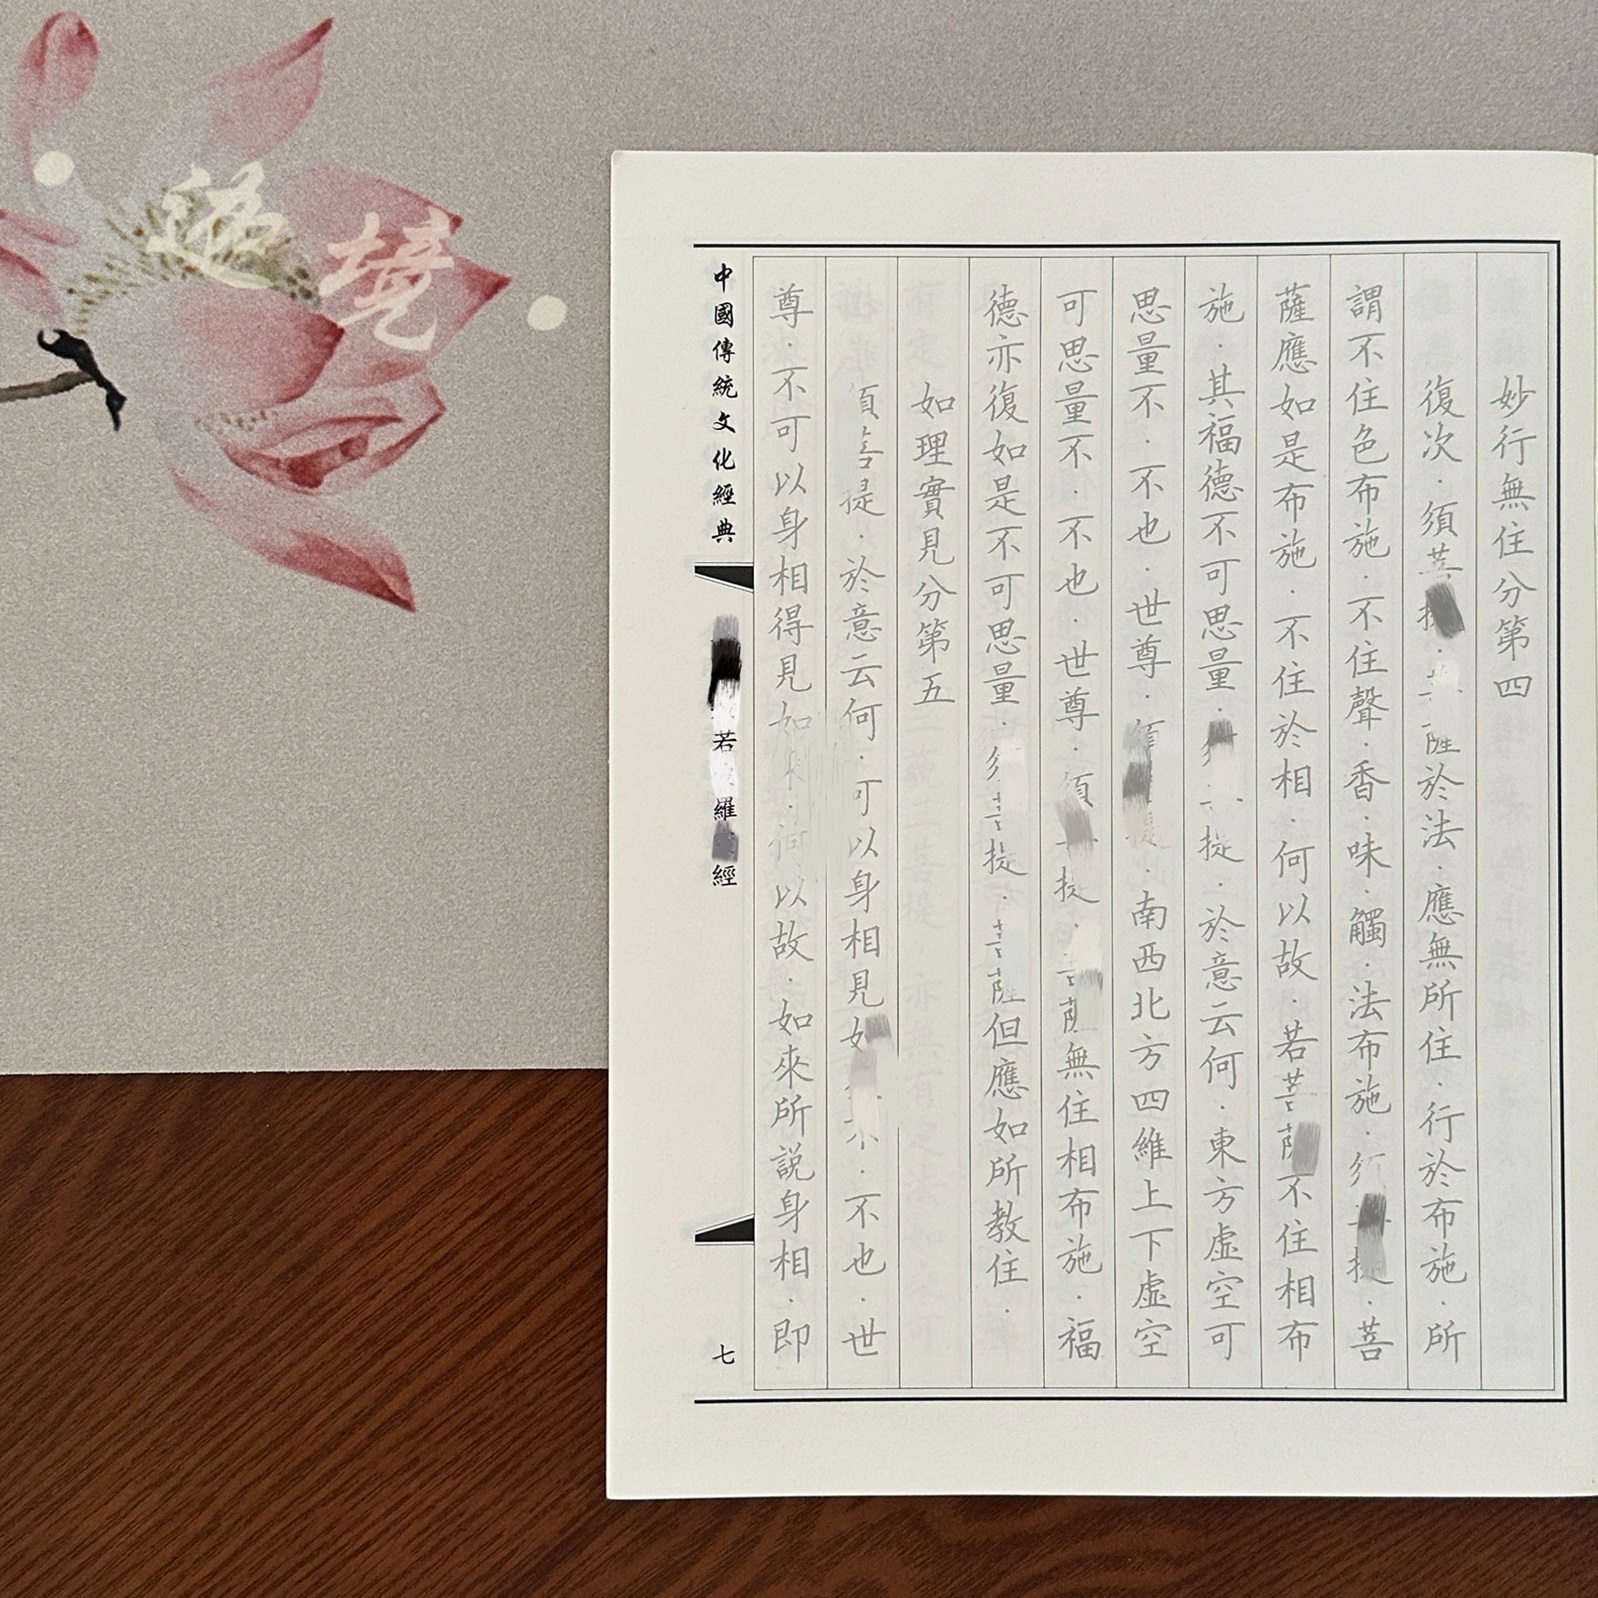 妙行無住分第四
復次．須．於法．應無所住．行於布施．所
謂不住色布施．不住聲．香．味．觸．法布施．菩
薩應如是布施．不住於相．何以故．若菩不住相布
施．其福德不可思量．提．於意云何．東方虛空可
思量不．不也．世尊．南西北方四維上下虛空
可思量不．不也．世尊．無住相布施．福
德亦復如是不可思量．提．但應如所教住．
如理實見分第五
提．於意云何．可以身相見．不也．世
尊．不可以身相得見如．何以故．如來所説身相．即
中國傳統文化經典
若羅經
七
境